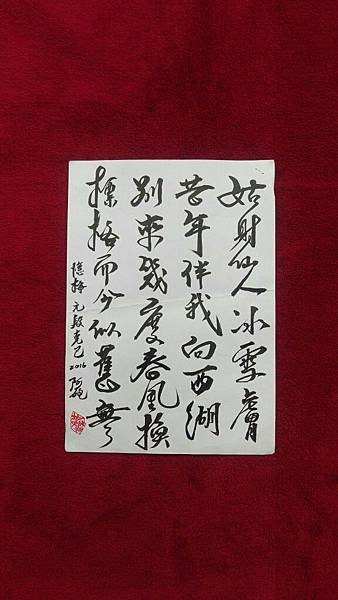 姑射仙人冰雪膚
昔年伴我向西湖
別來幾度春風換
標格而今似舊無
憶梅 元 段克己 2016